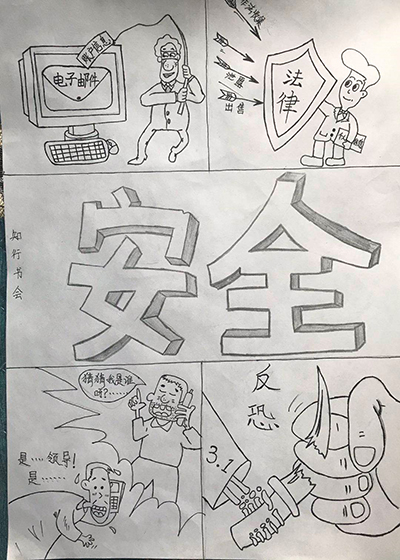 信息
电子邮件
泄露
出售
法
律
安全
知行书会
猜猜我是谁
呀?……
是……领导!
是……
反
恐
3.1